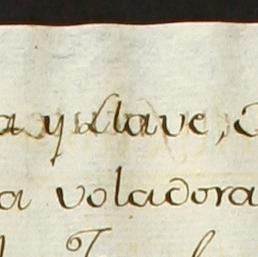 a y clave,
a voladora